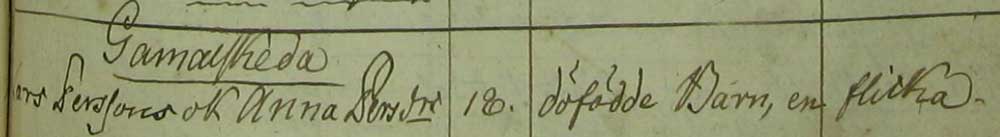 Gamalsheda
ars Perssons ok Anna Persdrs 18. döfödde Barn, en flicka.